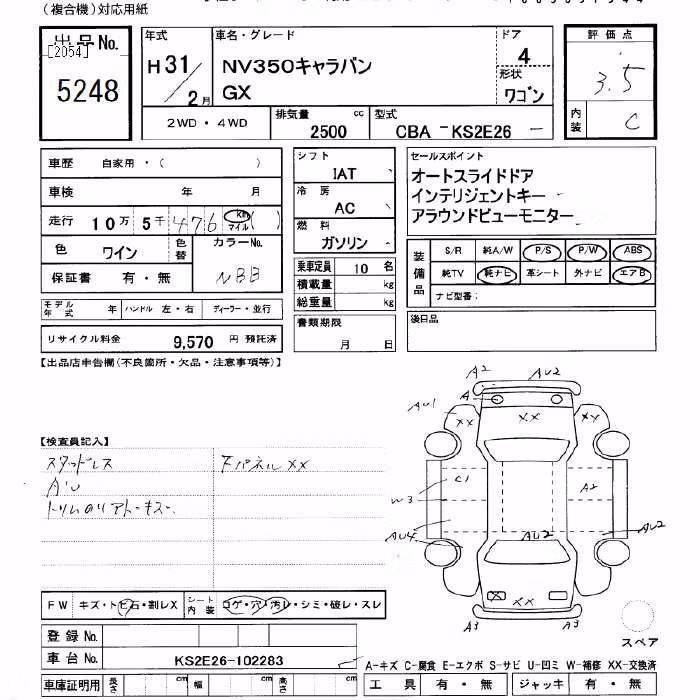 (複合機)対応用紙
出品No.
[2054]
5248
年式
H31/2月
車名・グレード
NV350キャラバン
GX
ドア
4
形状
ワゴン
評価点
3.5
内装
C
2WD・4WD
排気量 cc
2500
型式
CBA -KS2E26 -
車歴 自家用・( )
車検 年 月
走行 10万5千476 Km マイル ( )
色 ワイン
色替
カラーNo.
NBB
保証書 有・無
モデル年式 年 ハンドル 左・右 ディーラー・並行
リサイクル料金 9,570 円 預託済
シフト
IAT
冷房
AC
燃料
ガソリン
乗車定員 10 名
積載量 kg
総重量 kg
書類期限
月 日
セールスポイント
オートスライドドア
インテリジェントキー
アラウンドビューモニター
装備品
S/R 純A/W P/S P/W ABS
純TV 純ナビ 革シート 外ナビ エアB
ナビ型番:
後日品
【出品店申告欄(不良箇所・欠品・注意事項等)】
【検査員記入】
スタッドレス
AU
トリムのリアトーキズ
下パネルXX
FW キズ・トビ石・割レX
シート内装 コゲ・穴・汚レ・シミ・破レ・スレ
登録No.
車台No. KS2E26-102283
車庫証明用 長さ cm 幅 cm 高さ cm
A2
AU2
A
XX
AU1
XX
XX
C1
A2
W3
AU4
AU2
AU2
XX
A3
A3
スペア
A-キズ C-腐食 E-エクボ S-サビ U-凹ミ W-補修 XX-交換済
工具 有・無 ジャッキ 有・無